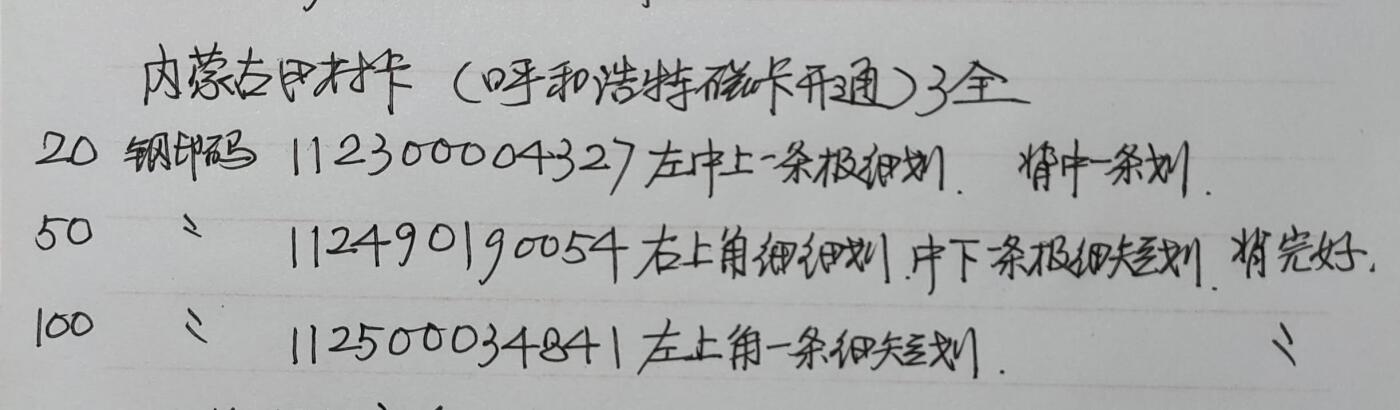 内蒙古田村卡（呼和浩特磁卡开通）3全
20 钢印码 112300004327左中上一条极细划. 背中一条划.
50 〃 112490190054右上角细细划.中下一条极细短划.背完好.
100 〃 112500034841左上角一条细短划. 〃